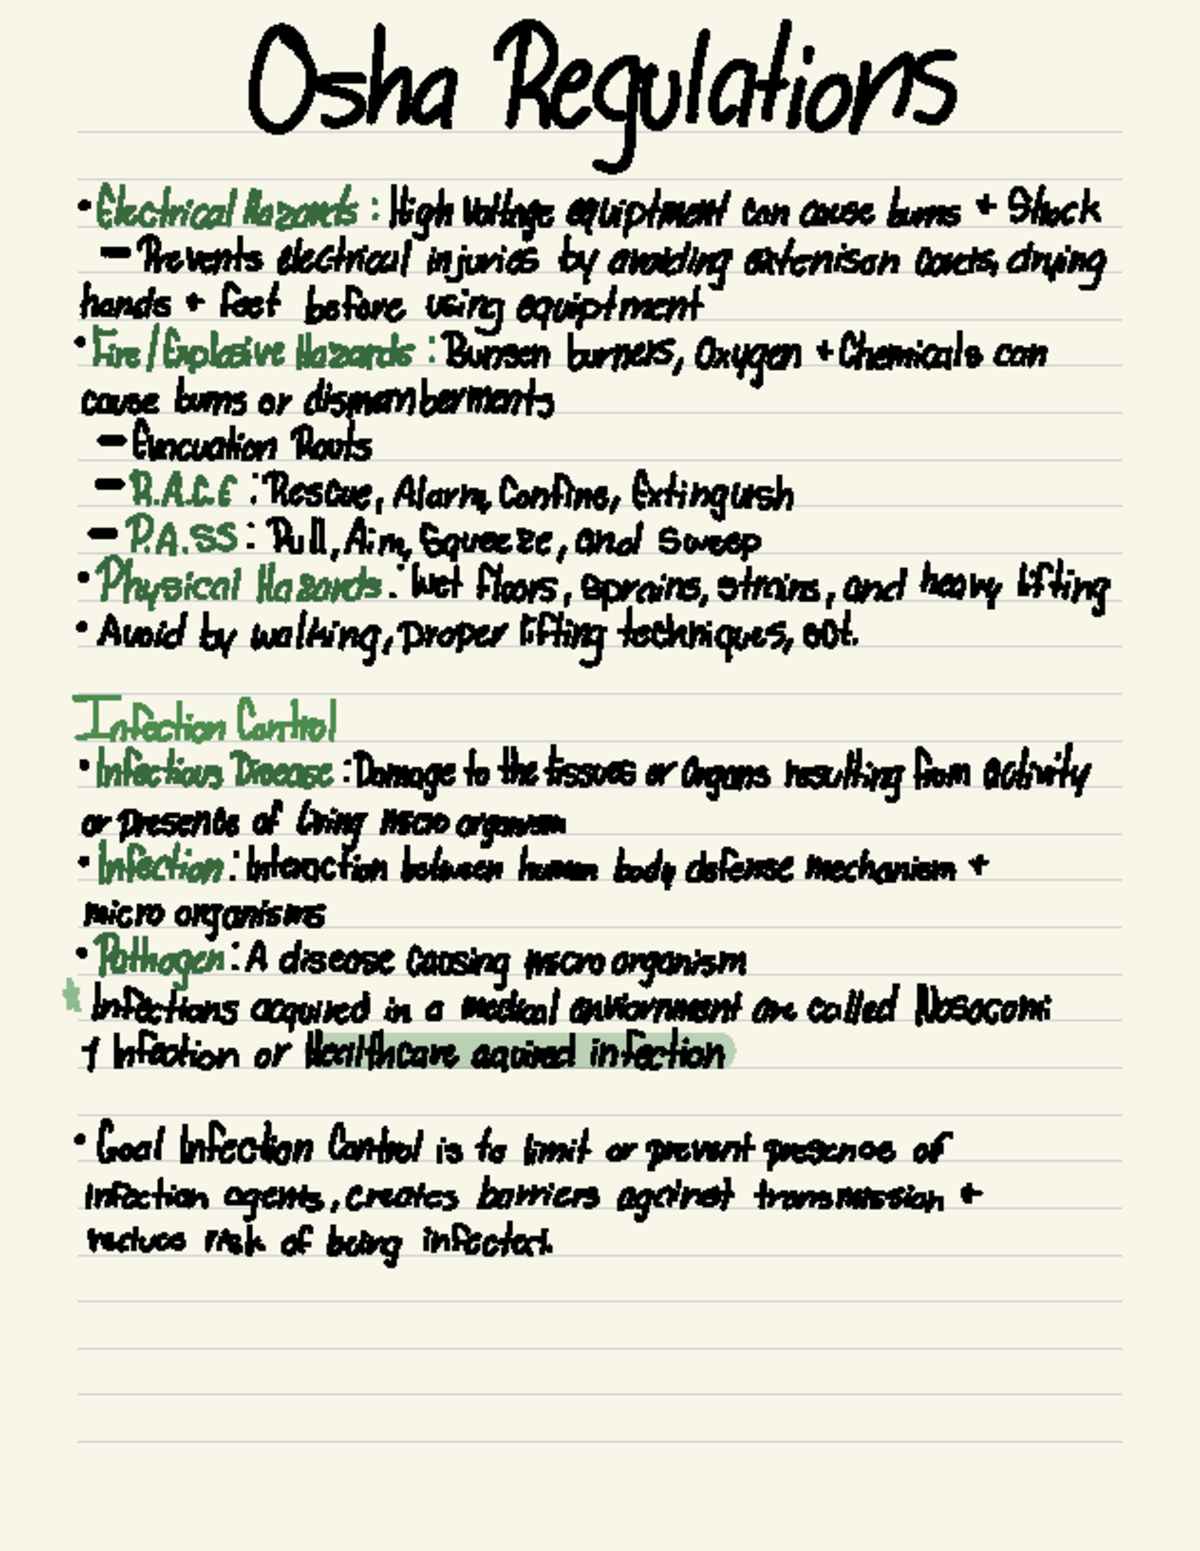 Osha Regulations
• Electrical Hazards : High Voltage equiptment can cause burns + Shock
– Prevents electrical injuries by avoiding extenison cords, drying
hands + feet before using equiptment
• Fire/Explosive Hazards : Bunsen burners, Oxygen + Chemicals can
cause burns or dismemberments
– Evacuation Routs
– R.A.C.E : Rescue, Alarm, Confine, Extinguish
– P.A.SS : Pull, Aim, Squeeze, and Sweep
• Physical Hazards : Wet floors, sprains, strains, and heavy lifting
• Avoid by walking, proper lifting techniques, ect.
Infection Control
• Infectious Disease : Damage to the tissues or organs resulting from activity
or presence of living micro organism
• Infection : Interaction between human body defense mechanism +
micro organisms
• Pathogen : A disease causing micro organism
* Infections acquired in a medical enviornment are called Nosocomi
Infection or Healthcare aquired infection
• Goal Infection Control is to limit or prevent presence of
infection agents, creates barriers against transmission +
reduce risk of being infected.